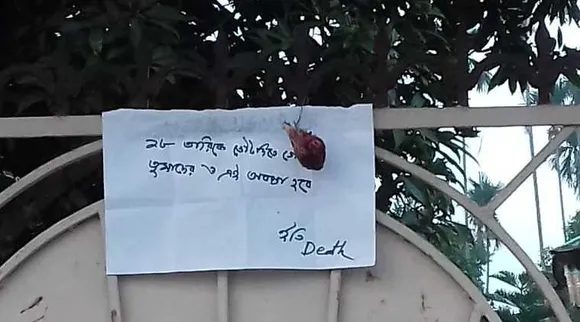 ২৮ তারিকে ভোট দিতে গে
তুমাদের ও এই অবস্থা হবে
ইতি
Death